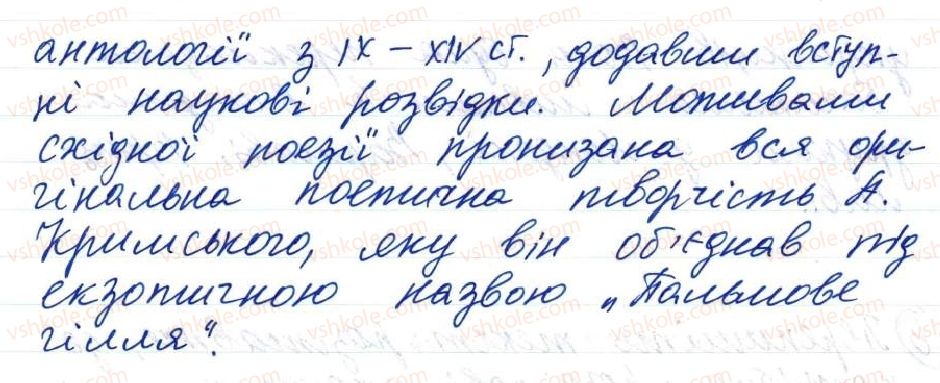 антології з IX – XIV ст., додавши вступ-
ні наукові розвідки. Мотивами
східної поезії пронизана вся ори-
гінальна поетична творчість А.
Кримського, яку він об'єднав під
екзотичною назвою „Пальмове
гілля".